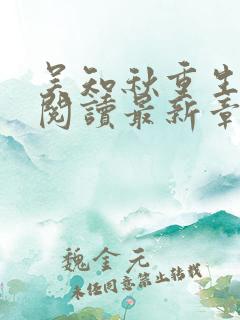 吴知秋重生
閱讀最新章
魏金元
未经同意禁止转载